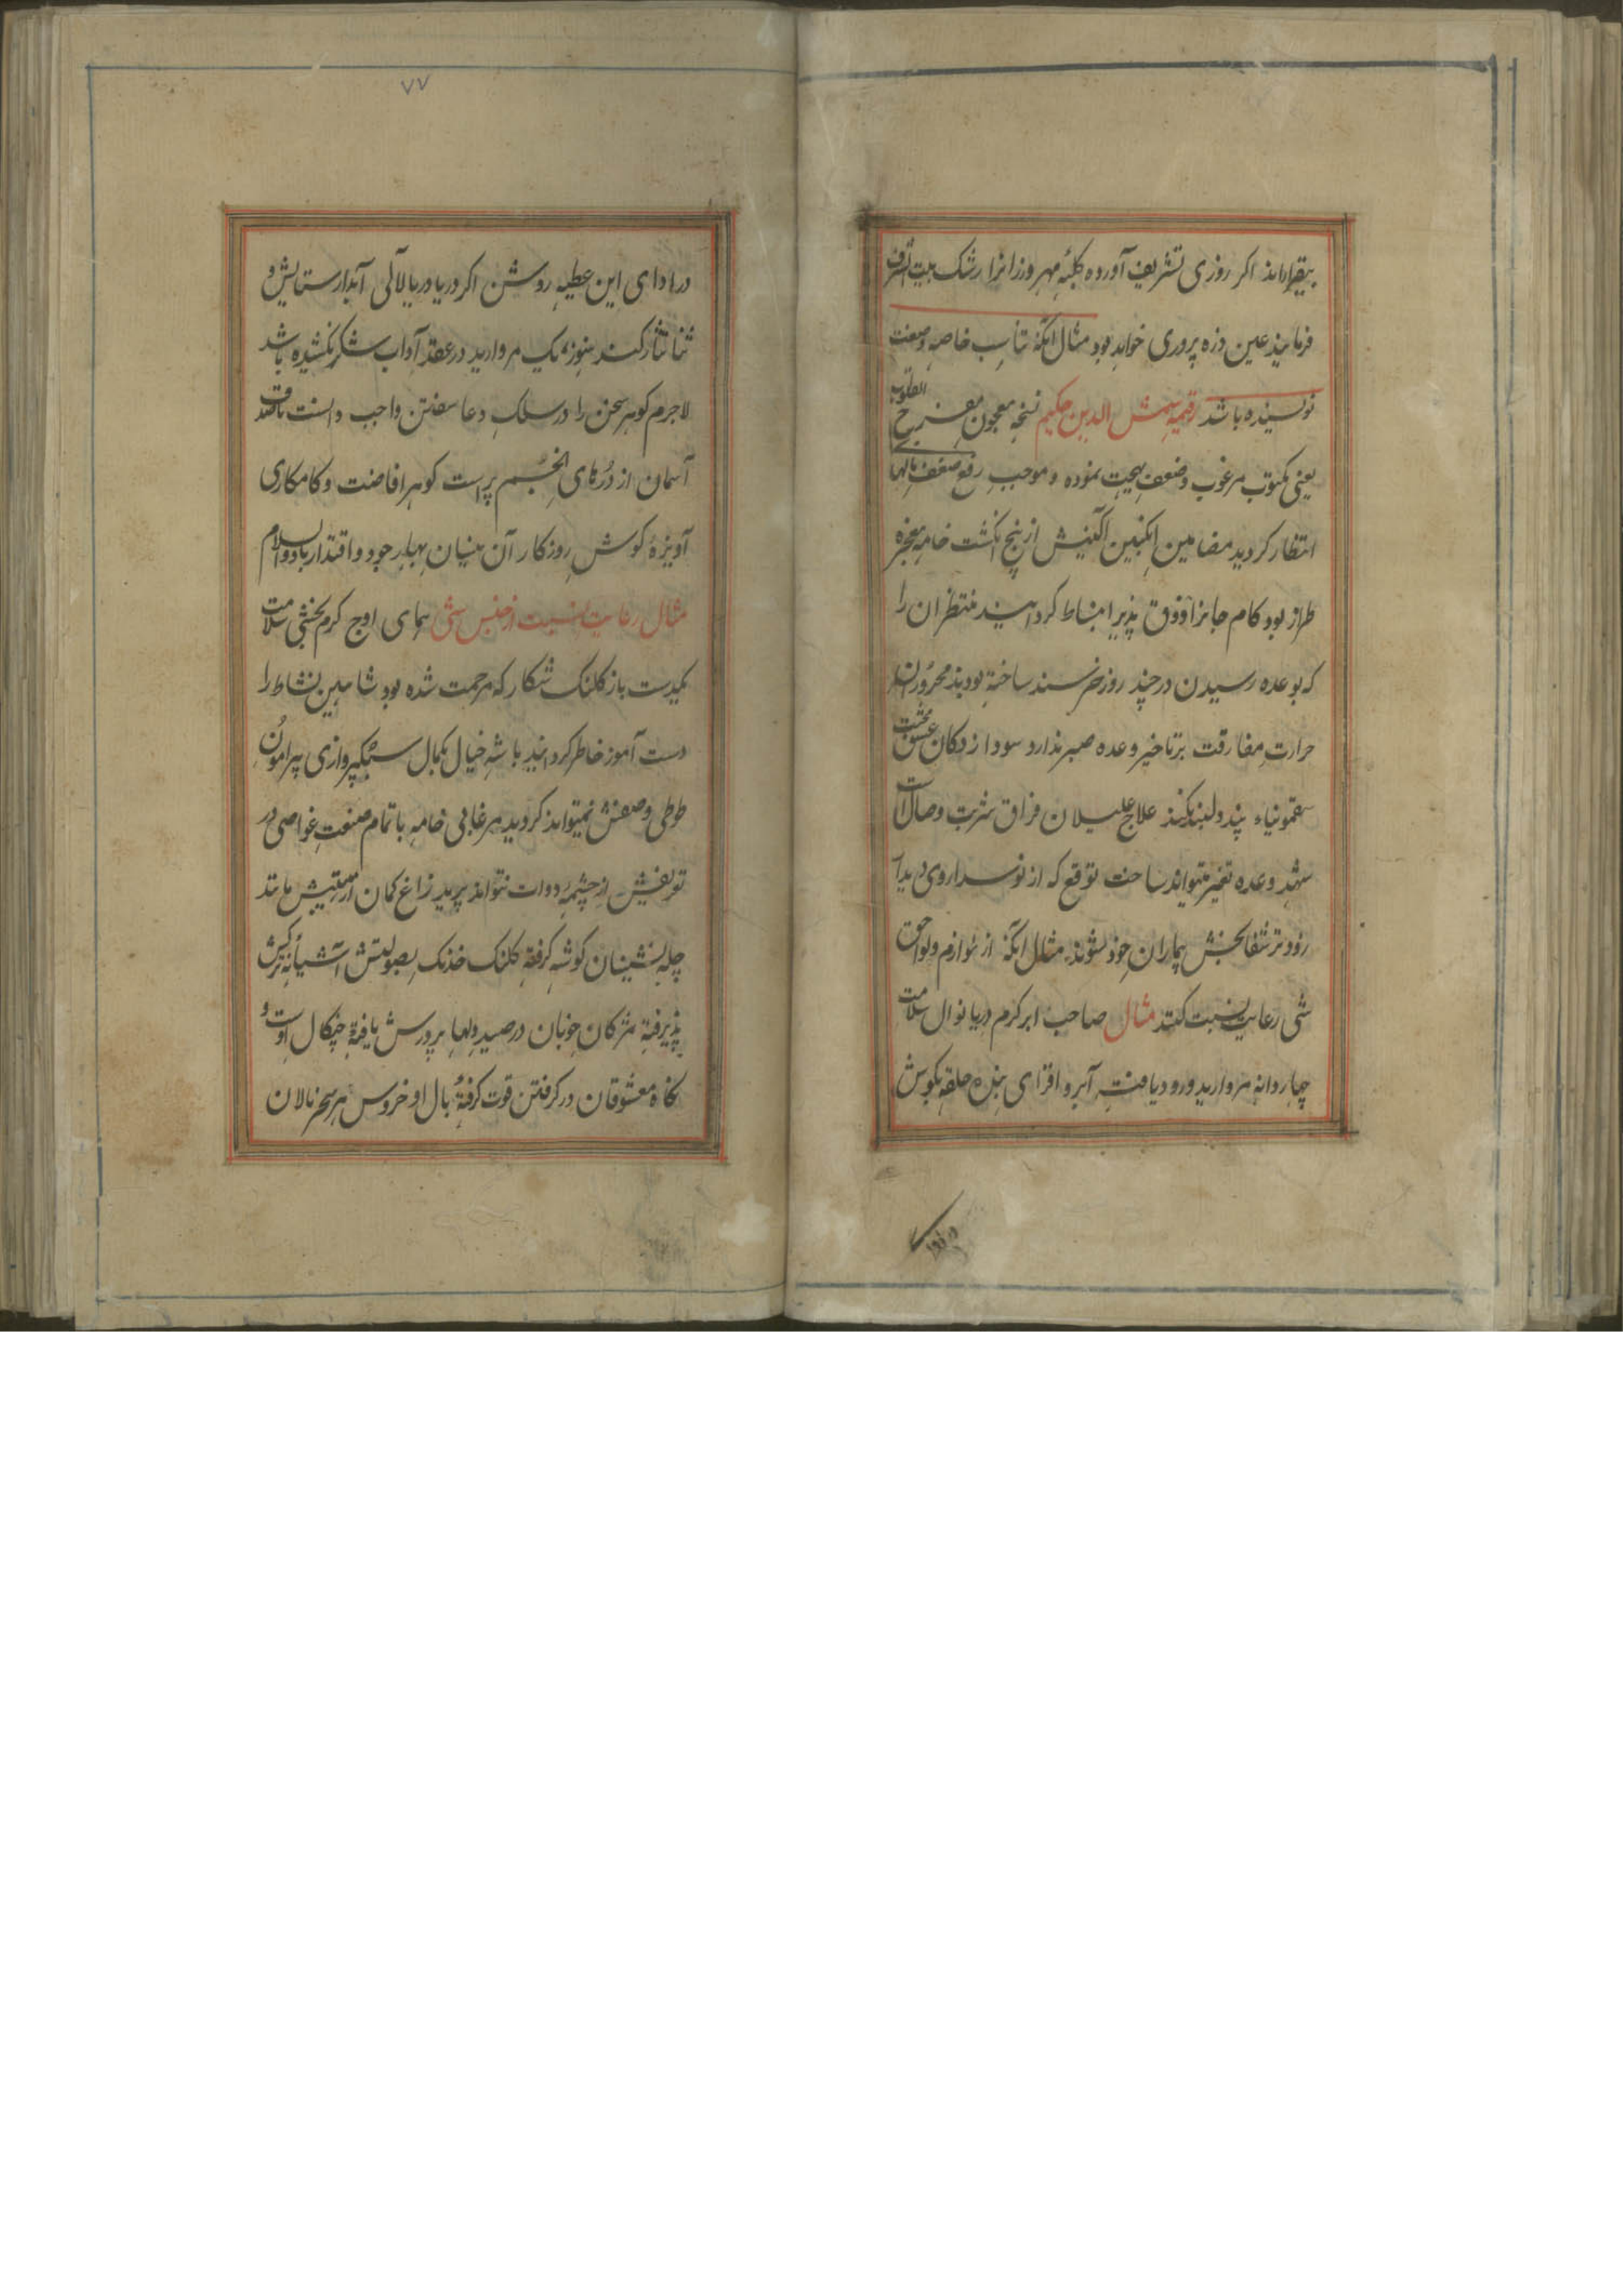 بیقرارماند اکر روزی تشریف آورده کلبهٔ مهرورزانرا رشک بیت الشرف
فرمایند عین ذره پروری خواهد بود مثال آنکه تناسب خاصه وصنعت
نویسنده باشد رقیمهٔ شمس الدین حکیم نسخه معجون مفرح القلوب
یعنی مکتوب مرغوب وضعف بهجت نموده و موجب رفع ضعف بالهای
انتظار کردید مضامین انکبین آکینش از پنج انکشت خامه معجزه
طراز بود کام جانرا ذوق پذیر انبساط کردانید منتظران را
که بوعده رسیدن در چند روز خرسند ساخته بودند محروران
حرارت مفارقت بر تاخیر وعده صبر ندارد سودا زدکان عشقت
سقمونیاء پند دلبند نکند علاج علیلان فراق شربت وصال است
بشهد وعده تغیر نتواند ساخت توقع که از نوسداروی دیدار
زودتر شفابخش بیماران خود شوند مثال آنکه از لوازم ولواحق
شی رعایت نسبت کنند مثال صاحب ابر کرم دریا نوال سلامت
چهار دانه مروارید ورود یافت آبرو افزای بنده حلقه بکوش
۷۷
در ادای این عطیه روشن اکر دریا دریا لآلی آبدار ستایش و
ثنا نثار کند هنوز یک مروارید در عقد آداب شکر نکشیده باشد
لاجرم کوهر سخن را در سلک دعا سفتن واجب دانست تا صدف
آسمان از دُرهای انجُم پر است کوهر افاضت و کامکاری
آویزهٔ کوش روزکار آن نیسان بهار جود و اقتدار باد والسلام
مثال رعایت نسبت از جنس شی همای اوج کرم بخشی سلامت
یکدست باز کلنک شکار که مرحمت شده بود شاهین نشاط را
دست آموز خاطر کردانید باشه خیال بکمال سبکپروازی پیرامون
طوطی وصفش نمیتواند کردید مرغابی خامه با تمام صنعت غواصی در
تعریفش از چشمهٔ دوات نتواند پرید زاغ کمان از هیبتش مانند
چله نشینان کوشه کرفته کلنک خدنک بصولتش آشیانهٔ ترکش
پذیرفته مژکان خوبان در صید دلها پرورش یافتهٔ چنکال اوست و
نکاه معشوقان در کرفتن قوت کرفتهٔ بال او خروس هر سحر نالان